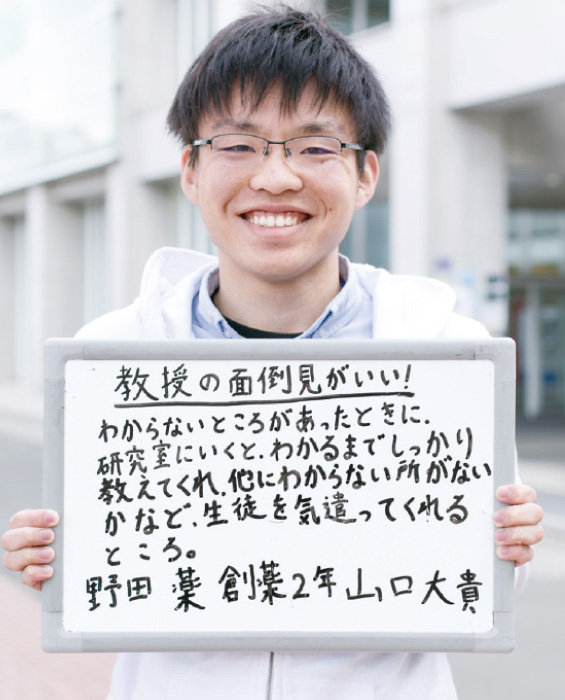 教授の面倒見がいい!
わからないところがあったときに、
研究室にいくと、わかるまでしっかり
教えてくれ、他にわからない所がない
かなど、生徒を気遣ってくれる
ところ。
野田 薬 創薬2年 山口大貴